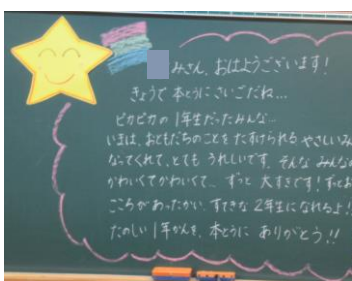 みさん、おはようございます！
きょうで 本とうにさいごだね…
ピカピカの 1年生だったみんな…
いまは、おともだちのことを たすけられる やさしいみ
なってくれて、とても うれしいです。そんな みんなの
かわいくてかわいくて… ずっと 大すきです！ずっとお
こころがあったかい、すてきな 2年生になれるよ！
たのしい 1年かんを、本とうに ありがとう！！